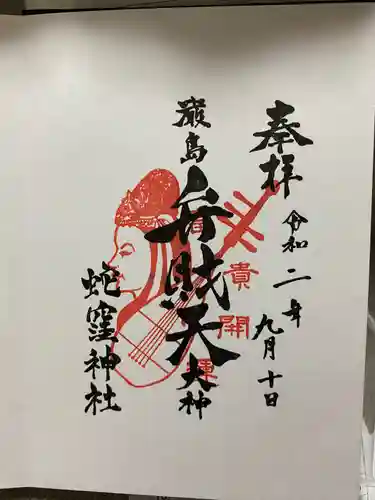 奉拝
令和二年
九月十日
巌島
弁財天
大神
蛇窪神社
貴
開
運